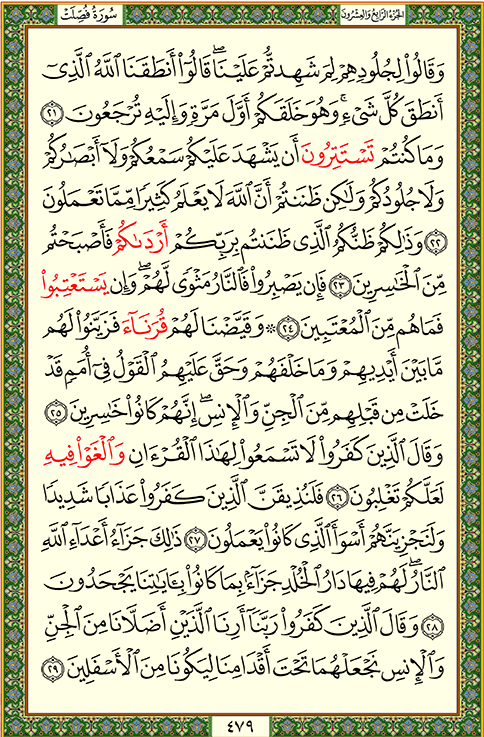 الجزء الرابع والعشرون
سورة فصلت
وَقَالُوا۟ لِجُلُودِهِمْ لِمَ شَهِدتُّمْ عَلَيْنَا ۖ قَالُوٓا۟ أَنطَقَنَا ٱللَّهُ ٱلَّذِىٓ
أَنطَقَ كُلَّ شَىْءٍۢ وَهُوَ خَلَقَكُمْ أَوَّلَ مَرَّةٍۢ وَإِلَيْهِ تُرْجَعُونَ ٢١
وَمَا كُنتُمْ تَسْتَتِرُونَ أَن يَشْهَدَ عَلَيْكُمْ سَمْعُكُمْ وَلَآ أَبْصَـٰرُكُمْ
وَلَا جُلُودُكُمْ وَلَـٰكِن ظَنَنتُمْ أَنَّ ٱللَّهَ لَا يَعْلَمُ كَثِيرًۭا مِّمَّا تَعْمَلُونَ
٢٢ وَذَٰلِكُمْ ظَنُّكُمُ ٱلَّذِى ظَنَنتُم بِرَبِّكُمْ أَرْدَىٰكُمْ فَأَصْبَحْتُم
مِّنَ ٱلْخَـٰسِرِينَ ٢٣ فَإِن يَصْبِرُوا۟ فَٱلنَّارُ مَثْوًۭى لَّهُمْ ۖ وَإِن يَسْتَعْتِبُوا۟
فَمَا هُم مِّنَ ٱلْمُعْتَبِينَ ٢٤ ۞ وَقَيَّضْنَا لَهُمْ قُرَنَآءَ فَزَيَّنُوا۟ لَهُم
مَّا بَيْنَ أَيْدِيهِمْ وَمَا خَلْفَهُمْ وَحَقَّ عَلَيْهِمُ ٱلْقَوْلُ فِىٓ أُمَمٍۢ قَدْ
خَلَتْ مِن قَبْلِهِم مِّنَ ٱلْجِنِّ وَٱلْإِنسِ ۖ إِنَّهُمْ كَانُوا۟ خَـٰسِرِينَ ٢٥
وَقَالَ ٱلَّذِينَ كَفَرُوا۟ لَا تَسْمَعُوا۟ لِهَـٰذَا ٱلْقُرْءَانِ وَٱلْغَوْا۟ فِيهِ
لَعَلَّكُمْ تَغْلِبُونَ ٢٦ فَلَنُذِيقَنَّ ٱلَّذِينَ كَفَرُوا۟ عَذَابًۭا شَدِيدًۭا
وَلَنَجْزِيَنَّهُمْ أَسْوَأَ ٱلَّذِى كَانُوا۟ يَعْمَلُونَ ٢٧ ذَٰلِكَ جَزَآءُ أَعْدَآءِ ٱللَّهِ
ٱلنَّارُ ۖ لَهُمْ فِيهَا دَارُ ٱلْخُلْدِ ۖ جَزَآءًۢ بِمَا كَانُوا۟ بِـَٔايَـٰتِنَا يَجْحَدُونَ
٢٨ وَقَالَ ٱلَّذِينَ كَفَرُوا۟ رَبَّنَآ أَرِنَا ٱلَّذَيْنِ أَضَلَّانَا مِنَ ٱلْجِنِّ
وَٱلْإِنسِ نَجْعَلْهُمَا تَحْتَ أَقْدَامِنَا لِيَكُونَا مِنَ ٱلْأَسْفَلِينَ ٢٩
٤٧٩